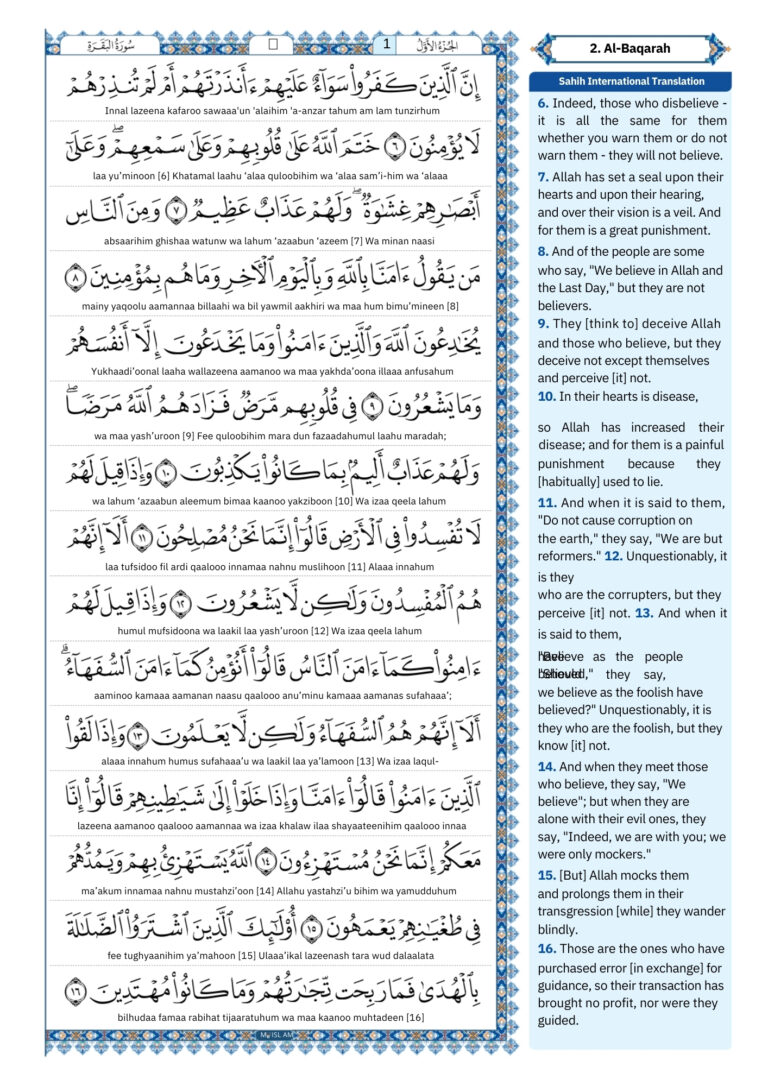 سُورَةُ البَقَرَةِ
1
الجُزْءُ الأَوَّلُ
إِنَّ ٱلَّذِينَ كَفَرُوا۟ سَوَآءٌ عَلَيْهِمْ ءَأَنذَرْتَهُمْ أَمْ لَمْ تُنذِرْهُمْ
Innal lazeena kafaroo sawaaa'un 'alaihim 'a-anzar tahum am lam tunzirhum
لَا يُؤْمِنُونَ ٦ خَتَمَ ٱللَّهُ عَلَىٰ قُلُوبِهِمْ وَعَلَىٰ سَمْعِهِمْ ۖ وَعَلَىٰٓ
laa yu'minoon [6] Khatamal laahu 'alaa quloobihim wa 'alaa sam'i-him wa 'alaaa
أَبْصَـٰرِهِمْ غِشَـٰوَةٌ ۖ وَلَهُمْ عَذَابٌ عَظِيمٌ ٧ وَمِنَ ٱلنَّاسِ
absaarihim ghishaa watunw wa lahum 'azaabun 'azeem [7] Wa minan naasi
مَن يَقُولُ ءَامَنَّا بِٱللَّهِ وَبِٱلْيَوْمِ ٱلْـَٔاخِرِ وَمَا هُم بِمُؤْمِنِينَ ٨
mainy yaqoolu aamannaa billaahi wa bil yawmil aakhiri wa maa hum bimu'mineen [8]
يُخَـٰدِعُونَ ٱللَّهَ وَٱلَّذِينَ ءَامَنُوا۟ وَمَا يَخْدَعُونَ إِلَّآ أَنفُسَهُمْ
Yukhaadi'oonal laaha wallazeena aamanoo wa maa yakhda'oona illaaa anfusahum
وَمَا يَشْعُرُونَ ٩ فِى قُلُوبِهِم مَّرَضٌ فَزَادَهُمُ ٱللَّهُ مَرَضًا ۖ
wa maa yash'uroon [9] Fee quloobihim mara dun fazaadahumul laahu maradah;
وَلَهُمْ عَذَابٌ أَلِيمٌۢ بِمَا كَانُوا۟ يَكْذِبُونَ ١٠ وَإِذَا قِيلَ لَهُمْ
wa lahum 'azaabun aleemum bimaa kaanoo yakziboon [10] Wa izaa qeela lahum
لَا تُفْسِدُوا۟ فِى ٱلْأَرْضِ قَالُوٓا۟ إِنَّمَا نَحْنُ مُصْلِحُونَ ١١ أَلَآ إِنَّهُمْ
laa tufsidoo fil ardi qaalooo innamaa nahnu muslihoon [11] Alaaa innahum
هُمُ ٱلْمُفْسِدُونَ وَلَـٰكِن لَّا يَشْعُرُونَ ١٢ وَإِذَا قِيلَ لَهُمْ
humul mufsidoona wa laakil laa yash'uroon [12] Wa izaa qeela lahum
ءَامِنُوا۟ كَمَآ ءَامَنَ ٱلنَّاسُ قَالُوٓا۟ أَنُؤْمِنُ كَمَآ ءَامَنَ ٱلسُّفَهَآءُ ۗ
aaminoo kamaaa aamanan naasu qaalooo anu'minu kamaaa aamanas sufahaaa';
أَلَآ إِنَّهُمْ هُمُ ٱلسُّفَهَآءُ وَلَـٰكِن لَّا يَعْلَمُونَ ١٣ وَإِذَا لَقُوا۟
alaaa innahum humus sufahaaa'u wa laakil laa ya'lamoon [13] Wa izaa laqul-
ٱلَّذِينَ ءَامَنُوا۟ قَالُوٓا۟ ءَامَنَّا وَإِذَا خَلَوْا۟ إِلَىٰ شَيَـٰطِينِهِمْ قَالُوٓا۟ إِنَّا
lazeena aamanoo qaalooo aamannaa wa izaa khalaw ilaa shayaateenihim qaalooo innaa
مَعَكُمْ إِنَّمَا نَحْنُ مُسْتَهْزِءُونَ ١٤ ٱللَّهُ يَسْتَهْزِئُ بِهِمْ وَيَمُدُّهُمْ
ma'akum innamaa nahnu mustahzi'oon [14] Allahu yastahzi'u bihim wa yamudduhum
فِى طُغْيَـٰنِهِمْ يَعْمَهُونَ ١٥ أُو۟لَـٰٓئِكَ ٱلَّذِينَ ٱشْتَرَوُا۟ ٱلضَّلَـٰلَةَ
fee tughyaanihim ya'mahoon [15] Ulaaa'ikal lazeenash tara wud dalaalata
بِٱلْهُدَىٰ فَمَا رَبِحَت تِّجَـٰرَتُهُمْ وَمَا كَانُوا۟ مُهْتَدِينَ ١٦
bilhudaa famaa rabihat tijaaratuhum wa maa kaanoo muhtadeen [16]
2. Al-Baqarah
Sahih International Translation
6. Indeed, those who disbelieve -
it is all the same for them
whether you warn them or do not
warn them - they will not believe.
7. Allah has set a seal upon their
hearts and upon their hearing,
and over their vision is a veil. And
for them is a great punishment.
8. And of the people are some
who say, "We believe in Allah and
the Last Day," but they are not
believers.
9. They [think to] deceive Allah
and those who believe, but they
deceive not except themselves
and perceive [it] not.
10. In their hearts is disease,
so Allah has increased their
disease; and for them is a painful
punishment because they
[habitually] used to lie.
11. And when it is said to them,
"Do not cause corruption on
the earth," they say, "We are but
reformers." 12. Unquestionably, it
is they
who are the corrupters, but they
perceive [it] not. 13. And when it
is said to them,
as the people
they say,
we believe as the foolish have
believed?" Unquestionably, it is
they who are the foolish, but they
know [it] not.
14. And when they meet those
who believe, they say, "We
believe"; but when they are
alone with their evil ones, they
say, "Indeed, we are with you; we
were only mockers."
15. [But] Allah mocks them
and prolongs them in their
transgression [while] they wander
blindly.
16. Those are the ones who have
purchased error [in exchange] for
guidance, so their transaction has
brought no profit, nor were they
guided.